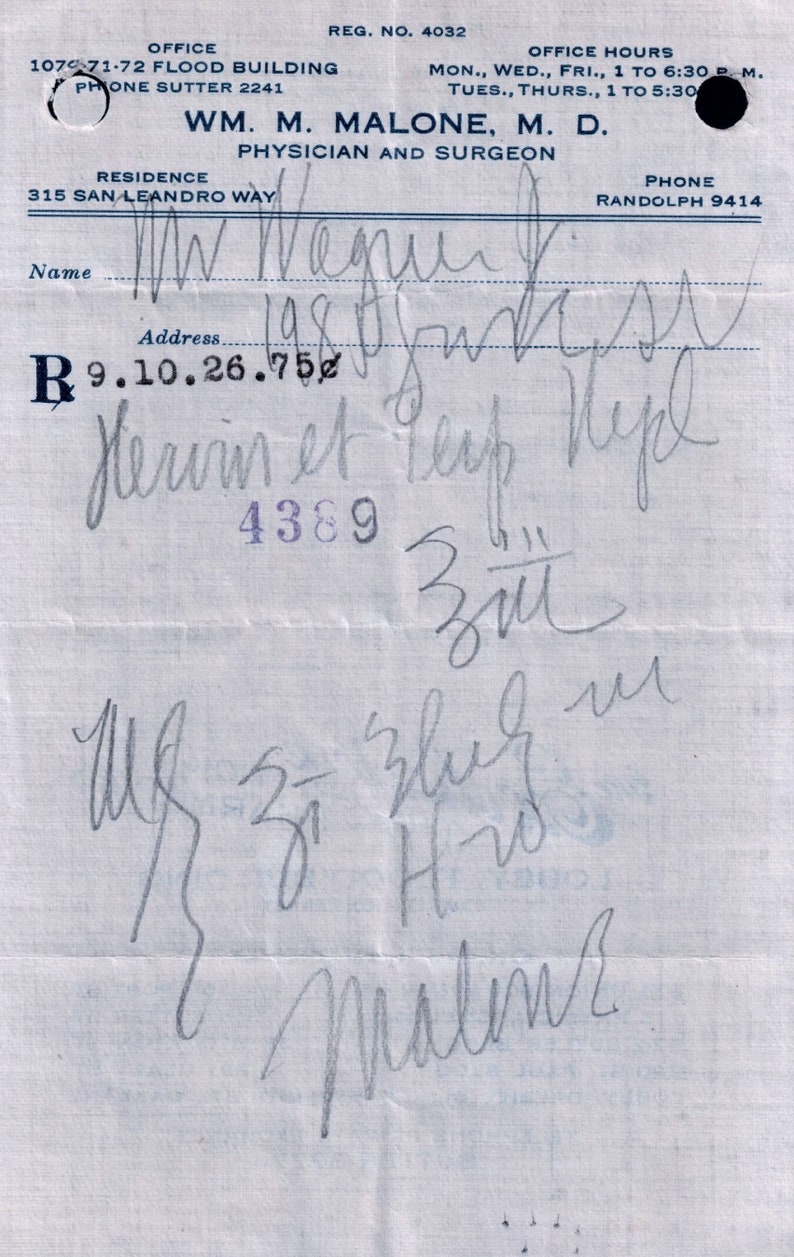 REG. NO. 4032
OFFICE
1070-71-72 FLOOD BUILDING
PHONE SUTTER 2241
OFFICE HOURS
MON., WED., FRI., 1 TO 6:30 P. M.
TUES., THURS., 1 TO 5:30
WM. M. MALONE, M. D.
PHYSICIAN AND SURGEON
RESIDENCE
315 SAN LEANDRO WAY
PHONE
RANDOLPH 9414
Name Mr Wagner Jr
Address 198
℞ 9.10.26.75¢
Heroin et Terp Hyd
4389
ʒiii
ʒi
H2O
Malone